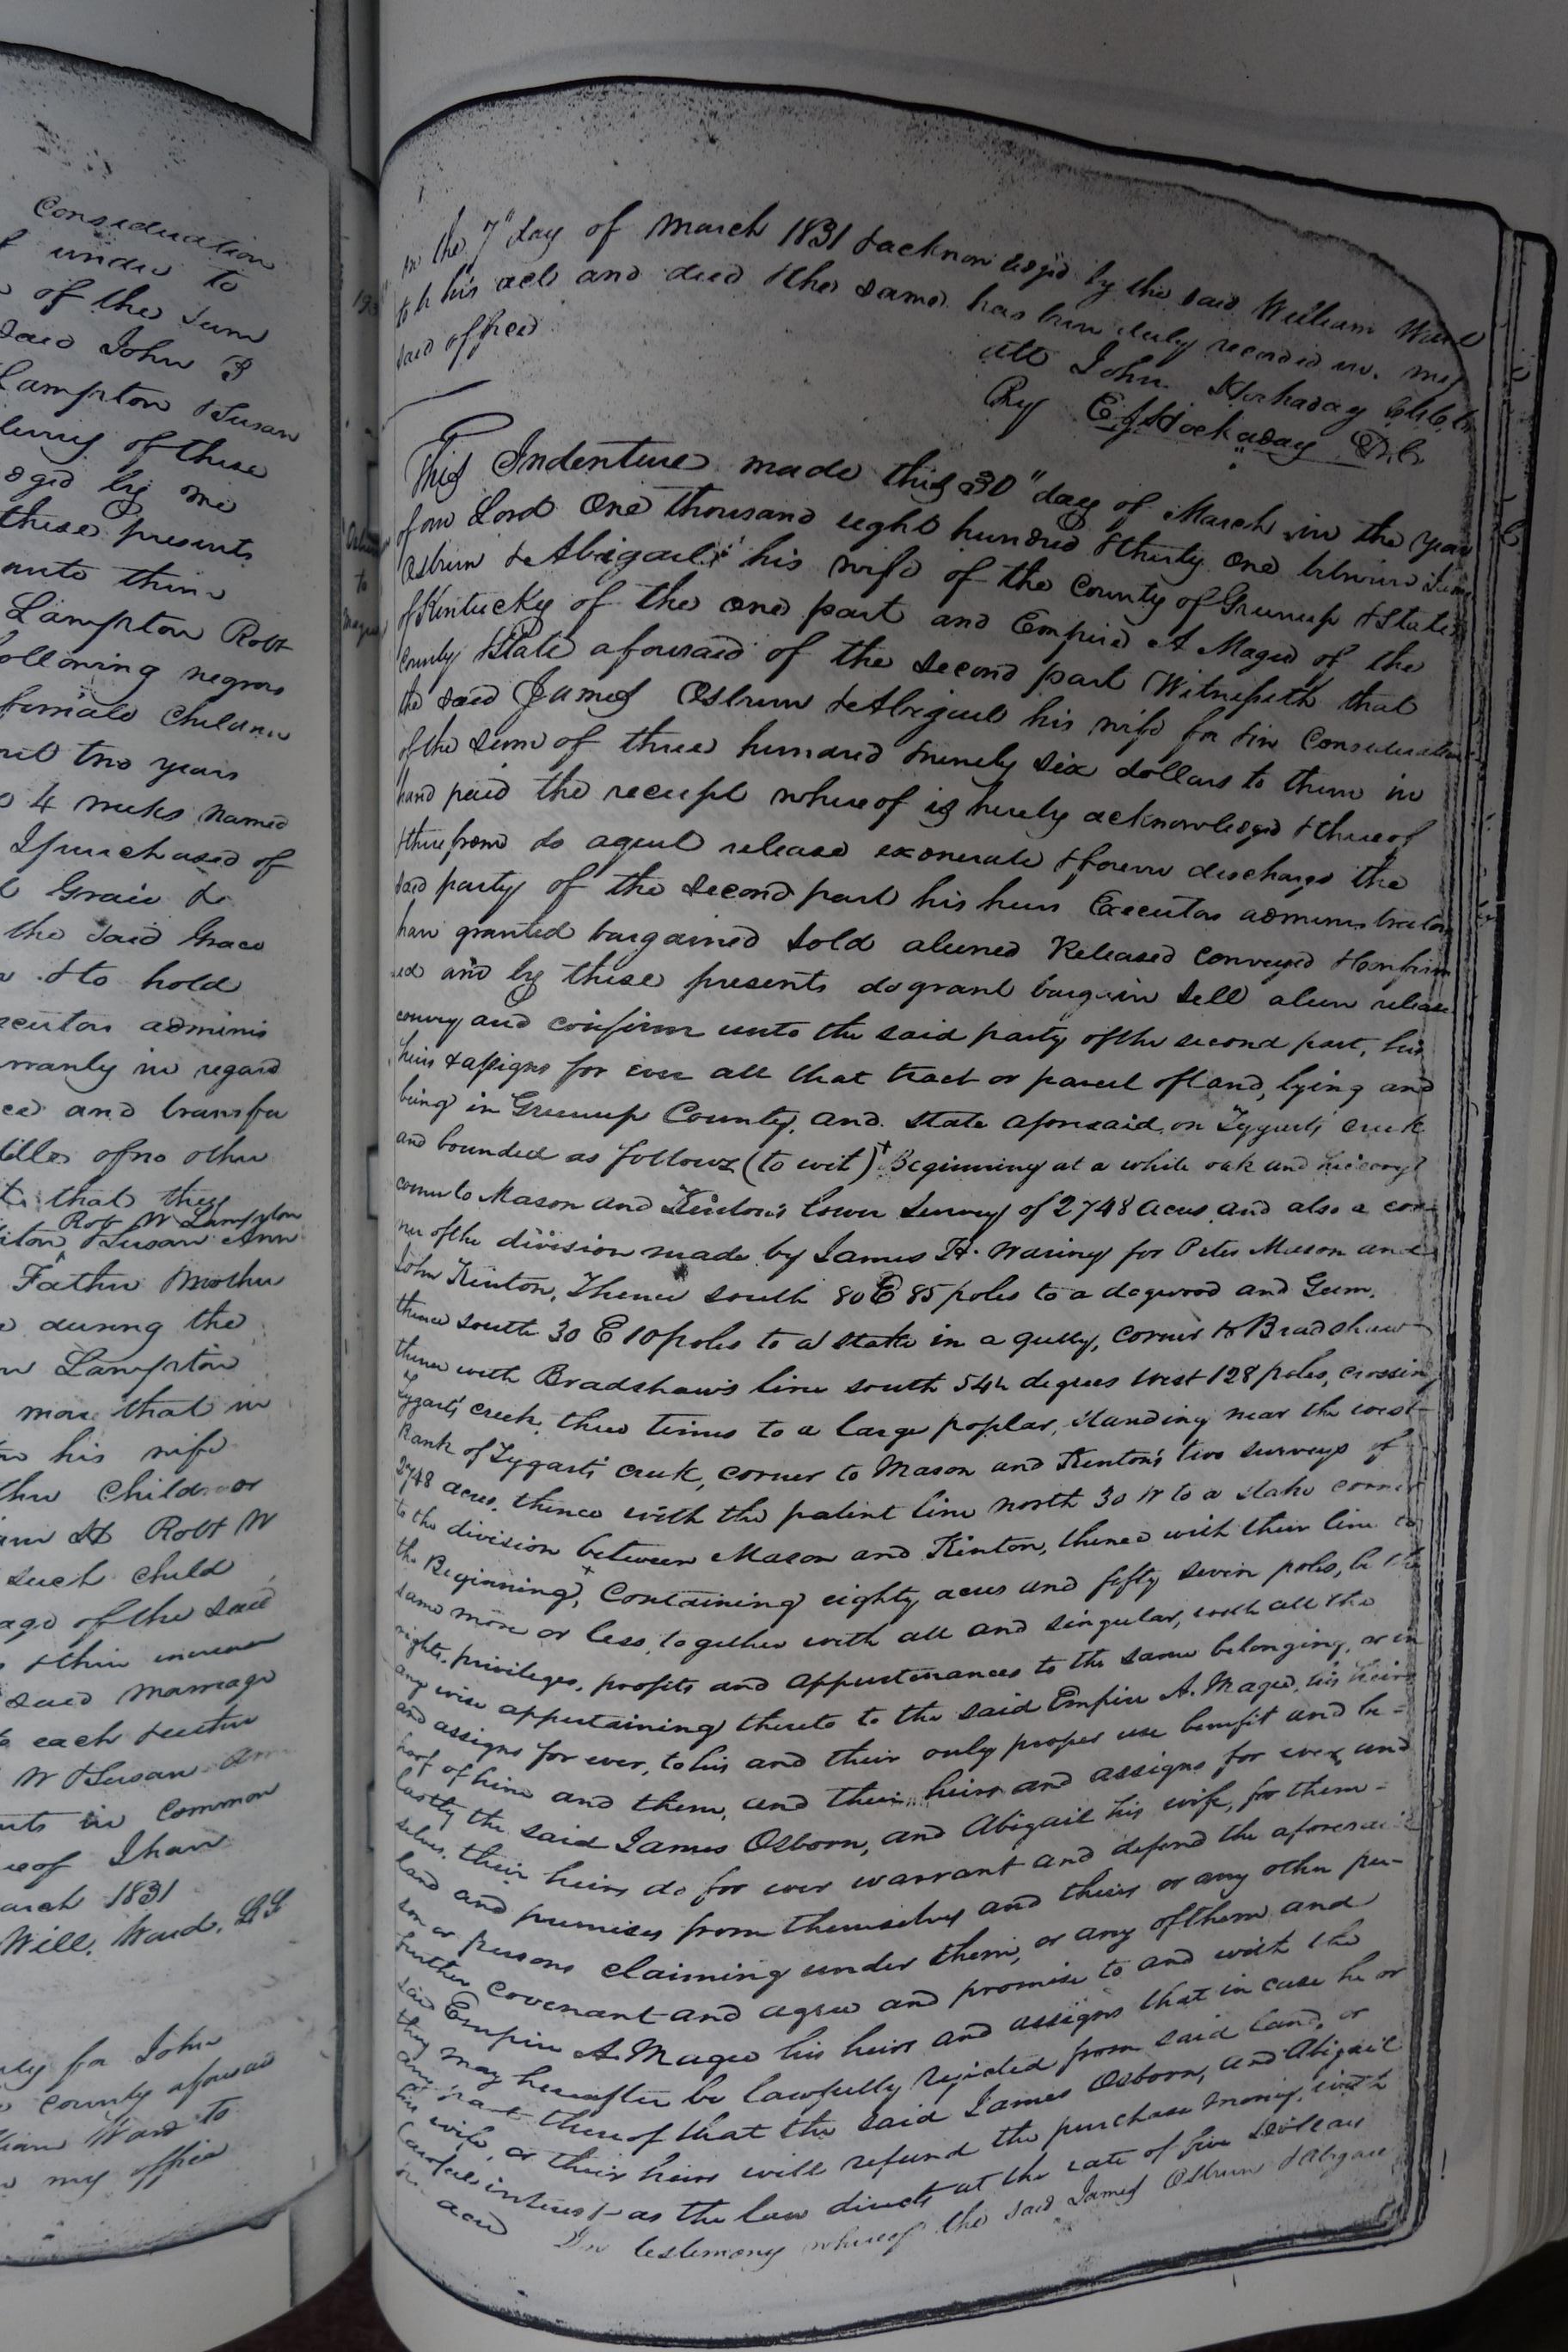 Consideration
under to
of the sum
said John B
Lampton & Susan
of these
by me
these presents
unto them
Lampton Robt
following negros
female children
two years
4 weeks named
I purchased of
Grace &
the said Grace
& to hold
adminis
in regard
and transfer
of no other
that they
Robt W Lampton
& Susan Ann
Father & Mother
during the
Lampton
more that in
his wife
child or
Robt W
such child
age of the said
& their increase
said marriage
each
W & Susan Ann
in common
I have
March 1831
Will. Ward. LS
for John
County aforesaid
Ward to
my office
on the 7" day of March 1831 & acknowledged by the said William Ward
to b his act and deed & the same has been duly recorded in my
said office
att John Hockaday
By E J Hockaday D.C.
Osburn
to
Magee
This Indenture made this 30" day of March in the year
of our Lord One thousand eight hundred & thirty one between James
Osburn & Abigail his wife of the County of Greenup & State
of Kentucky of the one part and Empire A Magee of the
County & State aforesaid of the second part Witnesseth that
the said James Osburn & Abigail his wife for & in Consideration
of the sum of three hundred & ninety six dollars to them in
hand paid the receipt whereof is hereby acknowledged & thereof
& therefrom do aquit release exonerate & forever discharge the
said party of the second part his heirs Executors administrators
have granted bargained sold aliened Released conveyed & Confirm
ed and by these presents do grant bargain sell alien release
convey and confirm unto the said party of the second part, his
heirs & assigns for ever all that tract or parcel of land, lying and
being in Greenup County, and state aforesaid, on Tygarts creek
and bounded as follows (to wit) + Beginning at a white oak and hickory
corner to Mason and Kenton's lower survey of 2748 acres and also a cor-
ner of the division made by James H. Waring for Peter Mason and
John Kenton, Thence south 80 E 85 poles to a dogwood and Gum,
thence south 30 E 10 poles to a stake in a gully, corner to Bradshaw
thence with Bradshaw's line south 54½ degrees west 128 poles, crossing
Tygarts creek three times to a large poplar, standing near the west
Bank of Tygarts creek, corner to Mason and Kenton's two surveys of
2748 acres, thence with the patent line north 30 W to a stake corner
to the division between Mason and Kenton, thence with their line to
the Beginning, + Containing eighty acres and fifty seven poles, be the
same more or less, together with all and singular, with all the
rights, privileges, profits and appurtenances to the same belonging, or in
any wise appertaining thereto to the said Empire A. Magee, his heirs
and assigns for ever, to his and their only proper use benefit and be=
hoof of him and them, and their heirs and assigns for ever, and
lastly the said James Osborn, and Abigail his wife, for them=
selves, their heirs do for ever warrant and defend the aforesaid
land and premises from themselves and theirs or any other per-
son or persons claiming under them, or any of them and
further covenant and agree and promise to and with the
said Empire A. Magee his heirs and assigns that in case he or
they may hereafter be lawfully from said land, or
any part thereof that the said James Osborn, and Abigail
his wife, or their heirs will refund the purchase money, with
Lawful interest as the law directs at the rate of five dollars
an acre In testimony whereof the said James Osburn & Abigail